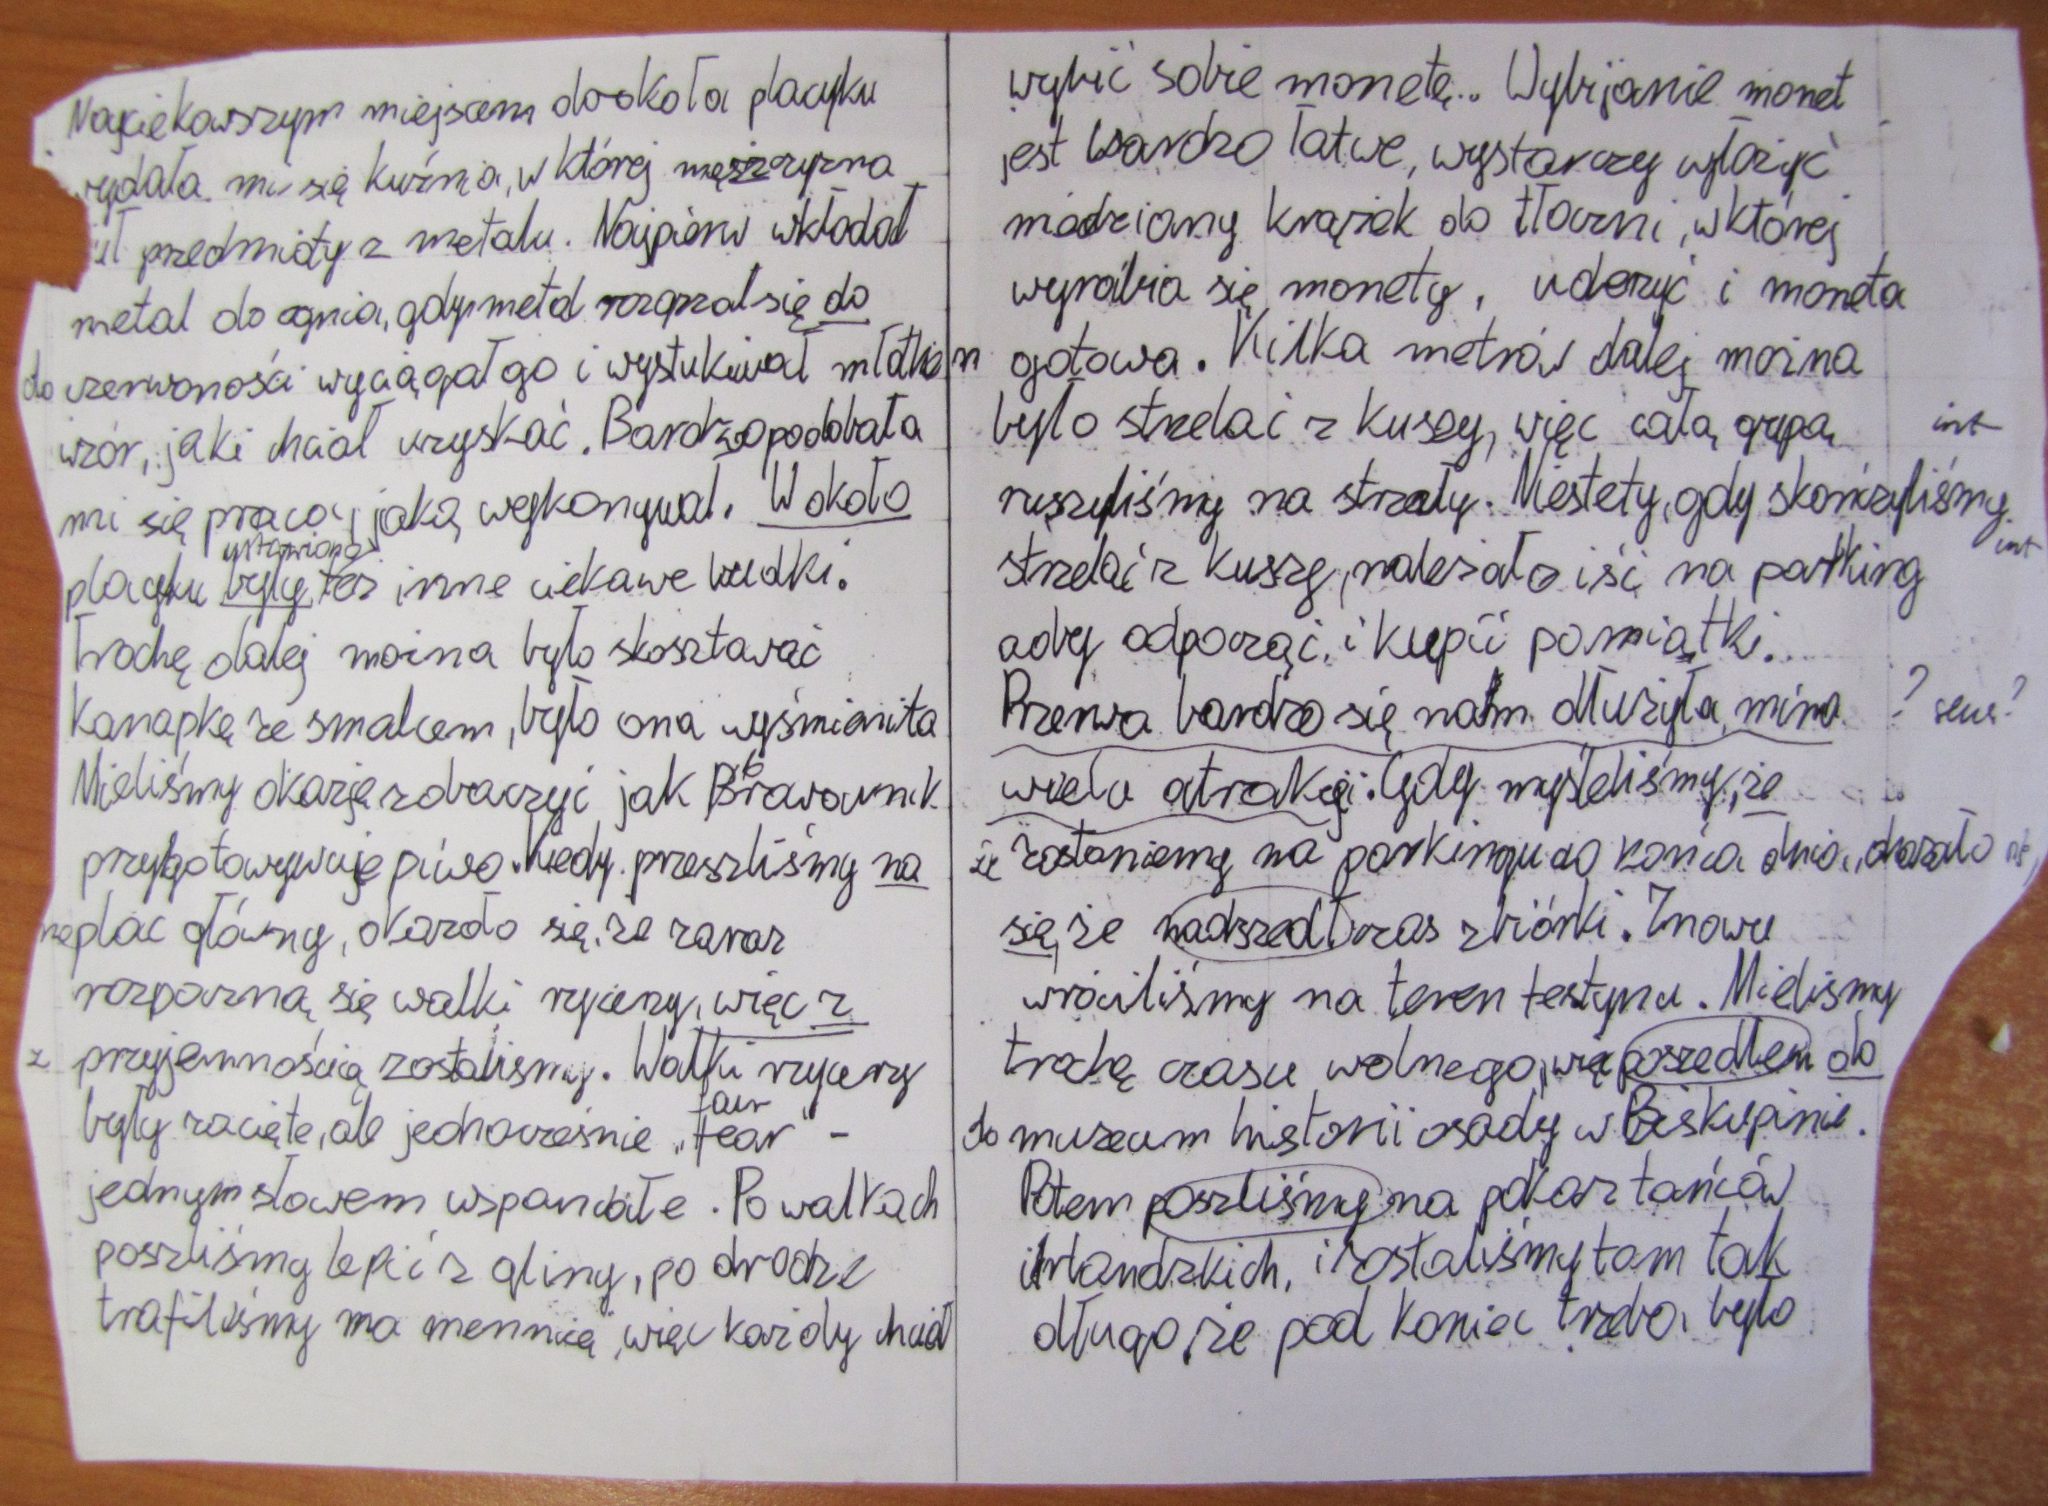 Najciekawszym miejscem dookoła placyku
wydała mi się kuźnia, w której męszczyzna
przedmioty z metalu. Najpierw wkładał
metal do ognia, gdy metal rozgrzał się do
do czerwoności wyciągał go i wystukiwał młotkiem
wzór, jaki chciał uzyskać. Bardzo podobała
mi się praca, jaką wykonywał. W około
ustawione
placyku były też inne ciekawe budki.
Trochę dalej można było skosztować
kanapkę ze smalcem, było ona wyśmienita
Mieliśmy okazję zobaczyć jak Brawownik
przygotowywuje piwo. Kiedy przeszliśmy na
na plac główny, okazało się, że zaraz
rozpoczną się walki rycerzy, więc z
z przyjemnością zostalismy. Walki rycerzy
fair
były zacięte, ale jednocześnie „fear" -
jednym słowem wspaniałe. Po walkach
poszliśmy lepić z gliny, po drodze
trafiliśmy na mennicę, więc każdy chciał
wybić sobie monetę.. Wybijanie monet
jest bardzo łatwe, wystarczy włożyć
miedziany krążek do tłoczni, w której
wyrabia się monety, uderzyć i moneta
gotowa. Kilka metrów dalej można
było strzelać z kuszy, więc całą grupą int
ruszyliśmy na strzały. Niestety, gdy skończyliśmy
int
strzelać z kuszy, należało iść na parking
aby odpocząć, i kupić pamiątki.
Przerwa bardzo się nam dłużyła, mimo ? sens?
wielu atrakcji. Gdy myśleliśmy, że
że zostaniemy na parkingu do końca dnia, okazało
się, że nadszedł czas zbiórki. Znowu
wróciliśmy na teren festynu. Mielismy
trochę czasu wolnego, więc poszedłem do
do muzeum historii osady w Biskupinie.
Potem poszliśmy na pokaz tańców
irlandzkich, i zostaliśmy tam tak
długo, że pod koniec trzeba było